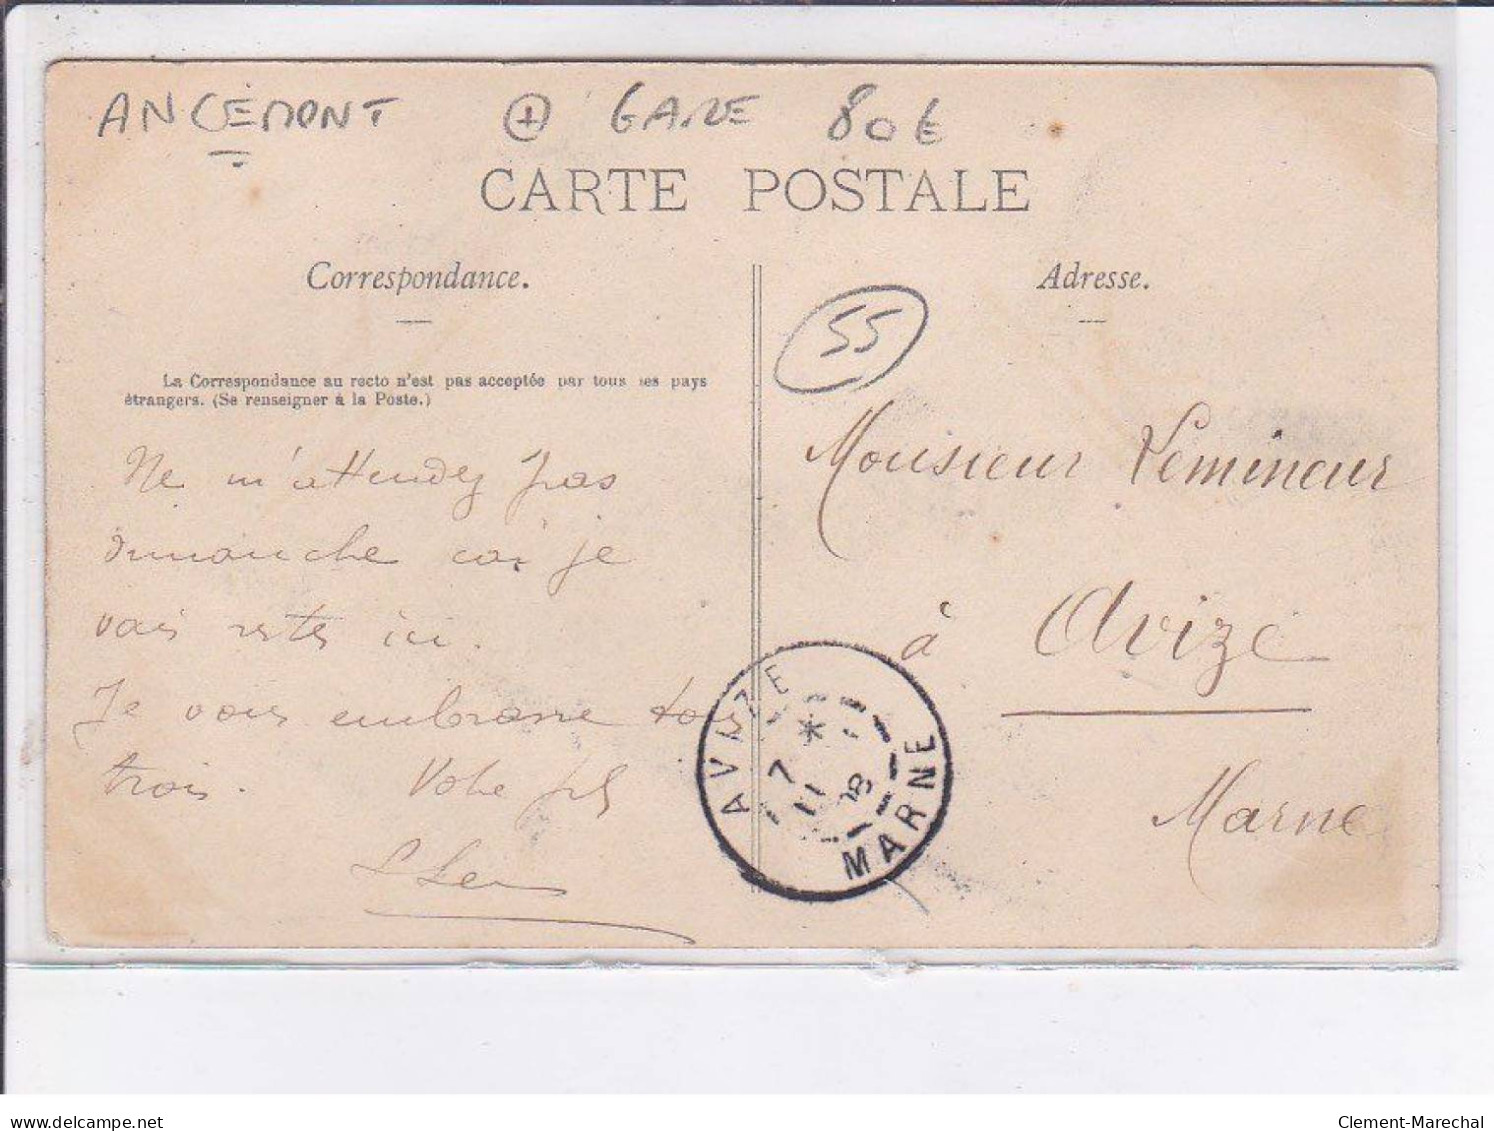 ANCEMONT + GARE 80€
CARTE POSTALE
Correspondance.
Adresse.
55
La Correspondance au recto n'est pas acceptée par tous les pays
étrangers. (Se renseigner à la Poste.)
Ne m'attendez pas
dimanche car je
vais rester ici.
Je vous embrasse tous
trois. Votre fils
Monsieur Lemineur
à Avize
Marne
AVIZE
* 
7
11
08
MARNE
delcampe.net
Clement-Marechal